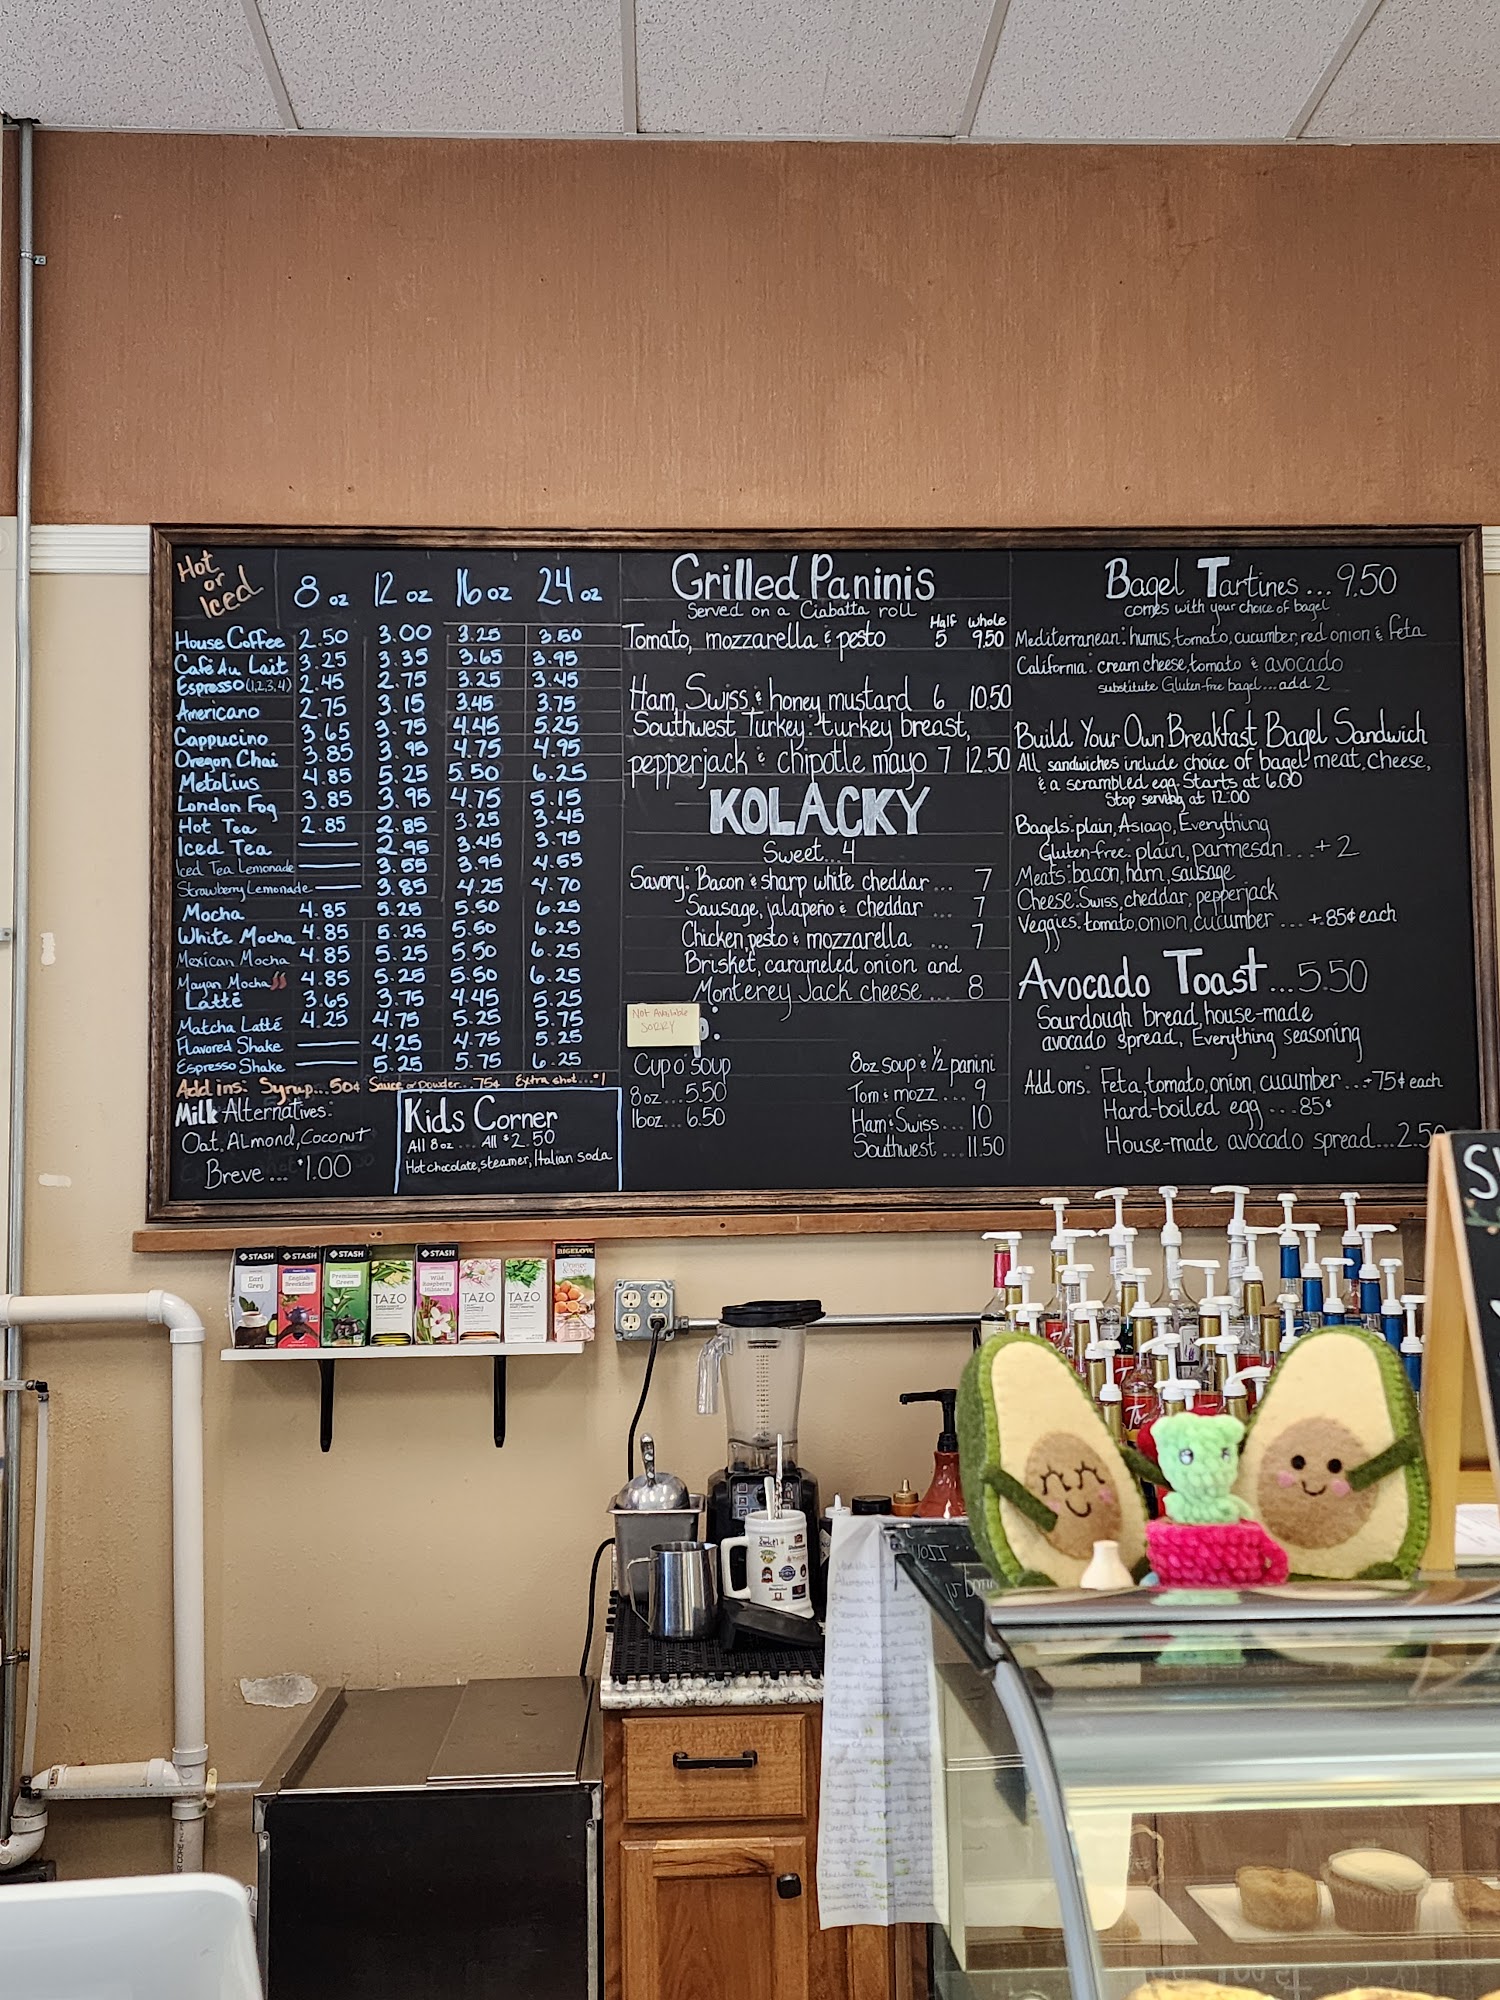 Hot
or
Iced
8 oz 12 oz 16 oz 24 oz
House Coffee 2.50 3.00 3.25 3.50
Café Au Lait 3.25 3.35 3.65 3.95
Espresso (1,2,3,4) 2.45 2.75 3.25 3.45
Americano 2.75 3.15 3.45 3.75
Cappucino 3.65 3.75 4.45 5.25
Oregon Chai 3.85 3.95 4.75 4.95
Metolius 4.85 5.25 5.50 6.25
London Fog 3.85 3.95 4.75 5.15
Hot Tea 2.85 2.85 3.25 3.45
Iced Tea 2.95 3.45 3.75
Iced Tea Lemonade 3.55 3.95 4.55
Strawberry Lemonade 3.85 4.25 4.70
Mocha 4.85 5.25 5.50 6.25
White Mocha 4.85 5.25 5.50 6.25
Mexican Mocha 4.85 5.25 5.50 6.25
Mayan Mocha 4.85 5.25 5.50 6.25
Latté 3.65 3.75 4.45 5.25
Matcha Latté 4.25 4.75 5.25 5.75
Flavored Shake 4.25 4.75 5.25
Espresso Shake 5.25 5.75 6.25
Add ins: Syrup...50¢ Sauce or Powder...75¢ Extra shot...$1
Milk Alternatives:
Oat, Almond, Coconut
Breve...$1.00
Kids Corner
All 8 oz ... All $2.50
Hot chocolate, steamer, Italian soda
Grilled Paninis
Served on a Ciabatta roll
Half whole
Tomato, mozzarella & pesto 5 9.50
Ham, Swiss & honey mustard 6 10.50
Southwest Turkey: turkey breast,
pepperjack & chipotle mayo 7 12.50
KOLACKY
Sweet...4
Savory: Bacon & sharp white cheddar... 7
Sausage, jalapeño & cheddar ... 7
Chicken, pesto & mozzarella ... 7
Brisket, carameled onion and
Monterey Jack cheese ... 8
Not Available
SORRY
Cup o' soup
8oz...5.50
16oz...6.50
8oz soup & 1/2 panini
Tom & mozz ... 9
Ham & Swiss... 10
Southwest ... 11.50
Bagel Tartines...9.50
comes with your choice of bagel
Mediterranean: humus, tomato, cucumber, red onion & feta
California: cream cheese, tomato & avocado
substitute Gluten-free bagel...add 2
Build Your Own Breakfast Bagel Sandwich
All sandwiches include choice of bagel meat, cheese,
& a scrambled egg. Starts at 6.00
Stop serving at 12:00
Bagels: plain, Asiago, Everything
Gluten-free: plain, parmesan...+2
Meats: bacon, ham, sausage
Cheese: Swiss, cheddar, pepperjack
Veggies: tomato, onion, cucumber ...+.85¢ each
Avocado Toast...5.50
Sourdough bread, house-made
avocado spread, Everything seasoning
Add ons: Feta, tomato, onion, cucumber...+75¢ each
Hard-boiled egg ...85¢
House-made avocado spread...2.50
STASH STASH STASH STASH BIGELOW
Earl
Grey
English
Breakfast
Premium
Green
TAZO
Wild
Raspberry
Hibiscus
TAZO
TAZO
Orange
& Spice